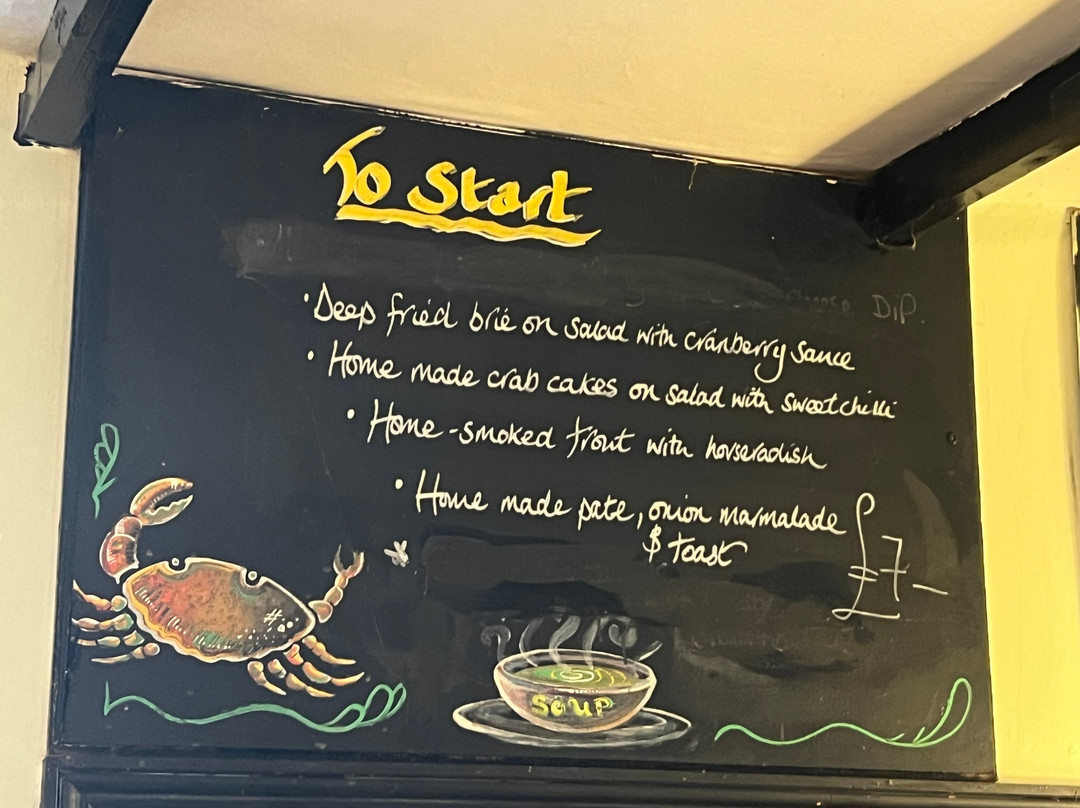 To Start
DiP.
• Deep fried brie on salad with cranberry sauce
• Home made crab cakes on salad with sweet chilli
• Home-smoked trout with horseradish
• Home made pate, onion marmalade
& toast
£7-
SOUP